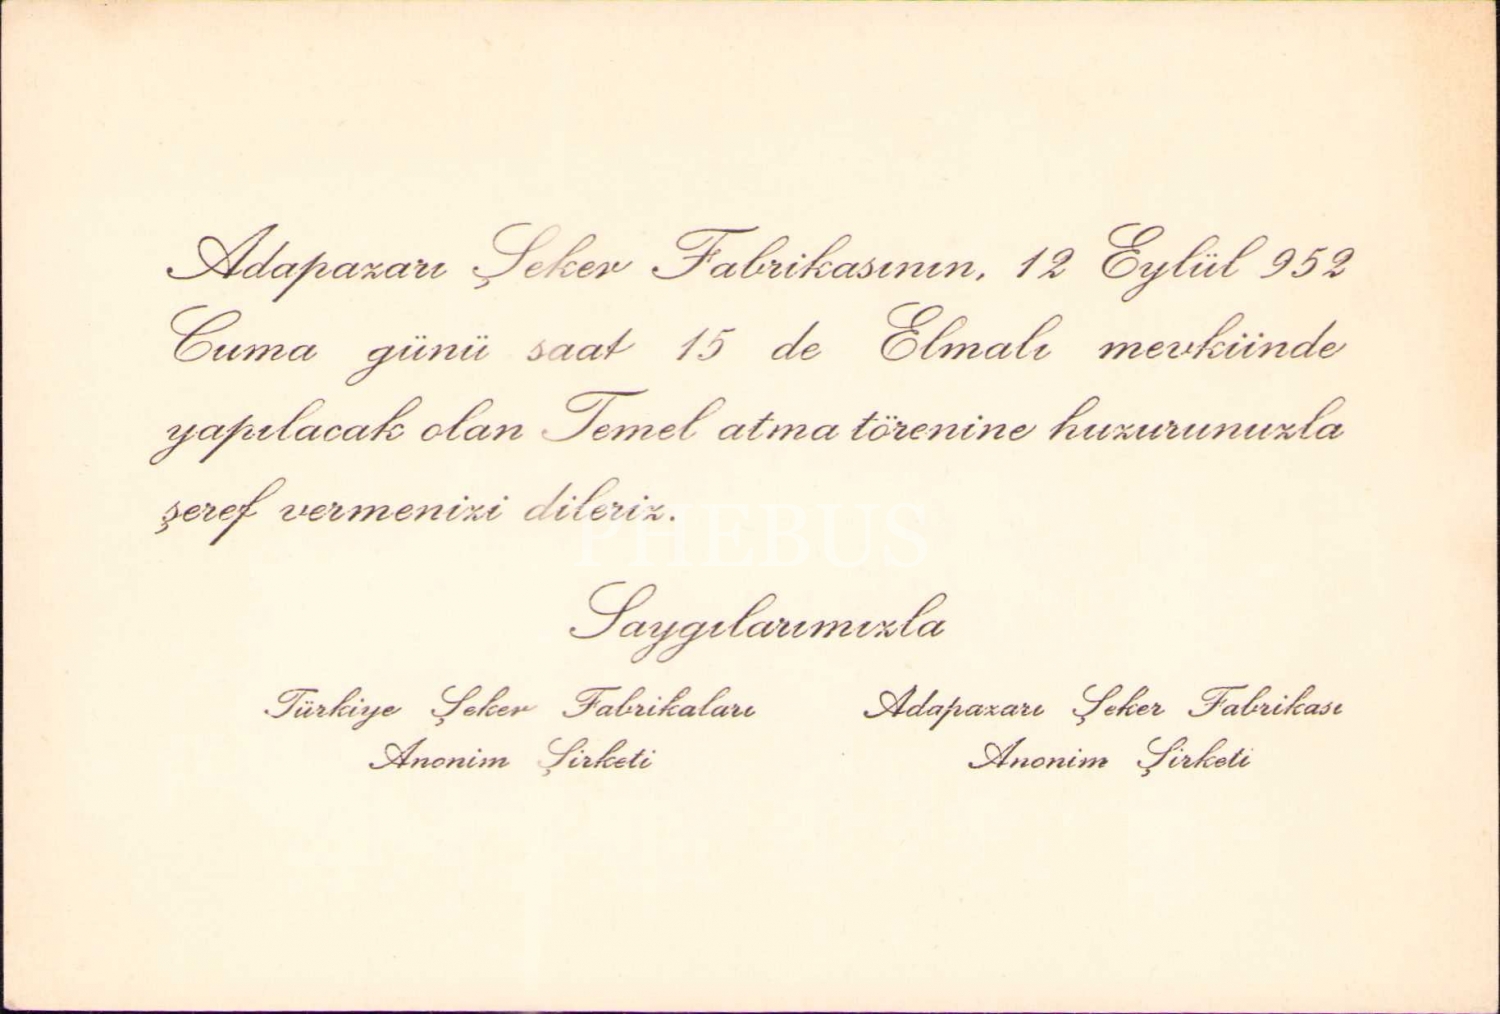 Adapazarı Şeker Fabrikasının, 12 Eylül 952
Cuma günü saat 15 de Elmalı mevkiinde
yapılacak olan Temel atma törenine huzurunuzla
şeref vermenizi dileriz.
PHEBUS
Saygılarımızla
Türkiye Şeker Fabrikaları Adapazarı Şeker Fabrikası
Anonim Şirketi Anonim Şirketi